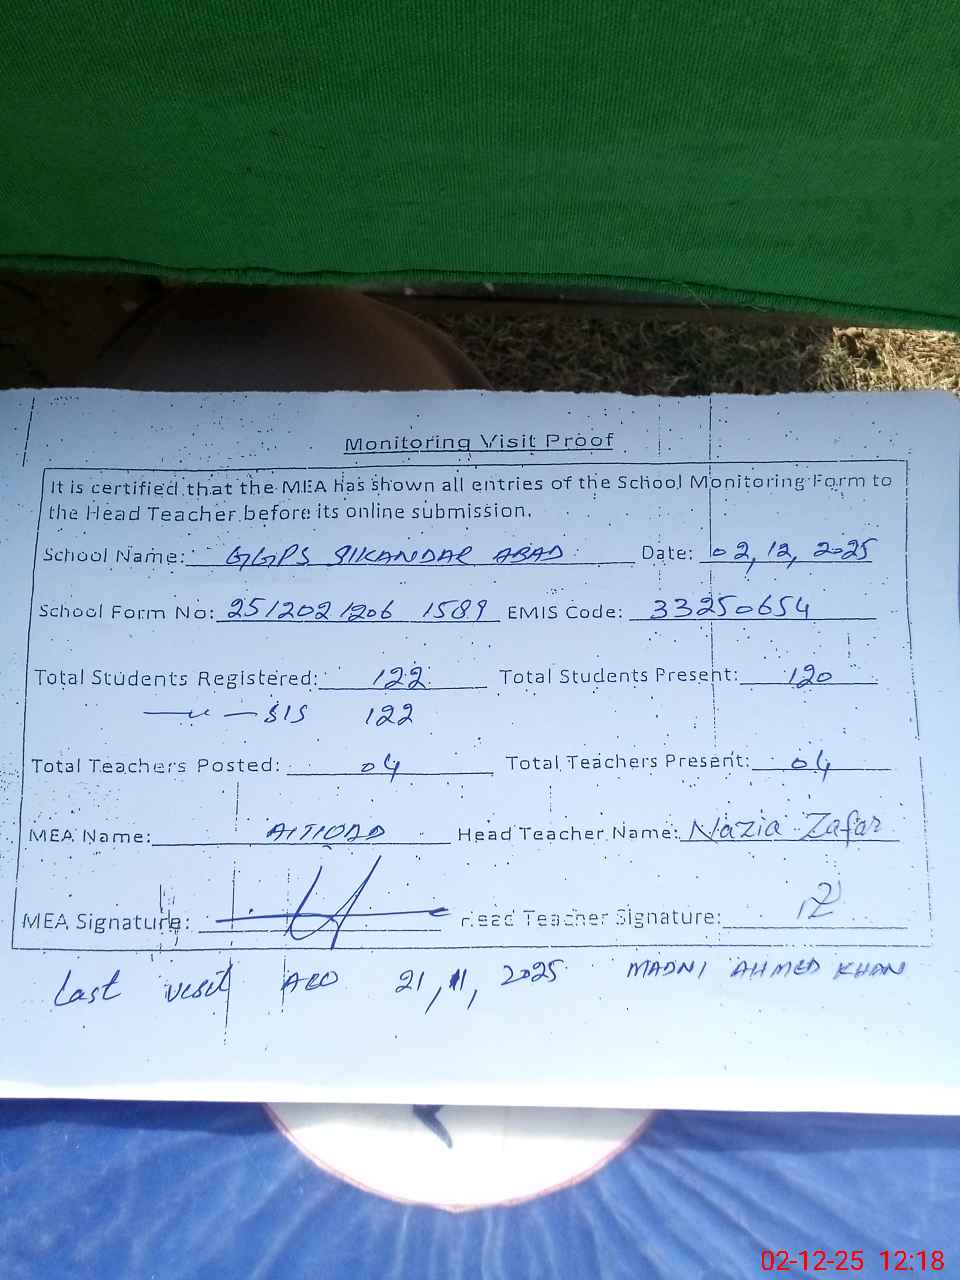 Monitoring Visit Proof
It is certified that the MEA has shown all entries of the School Monitoring Form to
the Head Teacher before its online submission.
School Name: GGPS SIKANDAR ABAD Date: 02, 12, 2025
School Form No: 251202 1206 1589 EMIS Code: 33250654
Total Students Registered: 122 Total Students Present: 120
SIS 122
Total Teachers Posted: 04 Total Teachers Present: 04
MEA Name: Head Teacher Name: Nazia Zafar
MEA Signature: Head Teacher Signature:
Last visit AEO 21, 11, 2025 MADNI AHMED KHAN
02-12-25 12:18